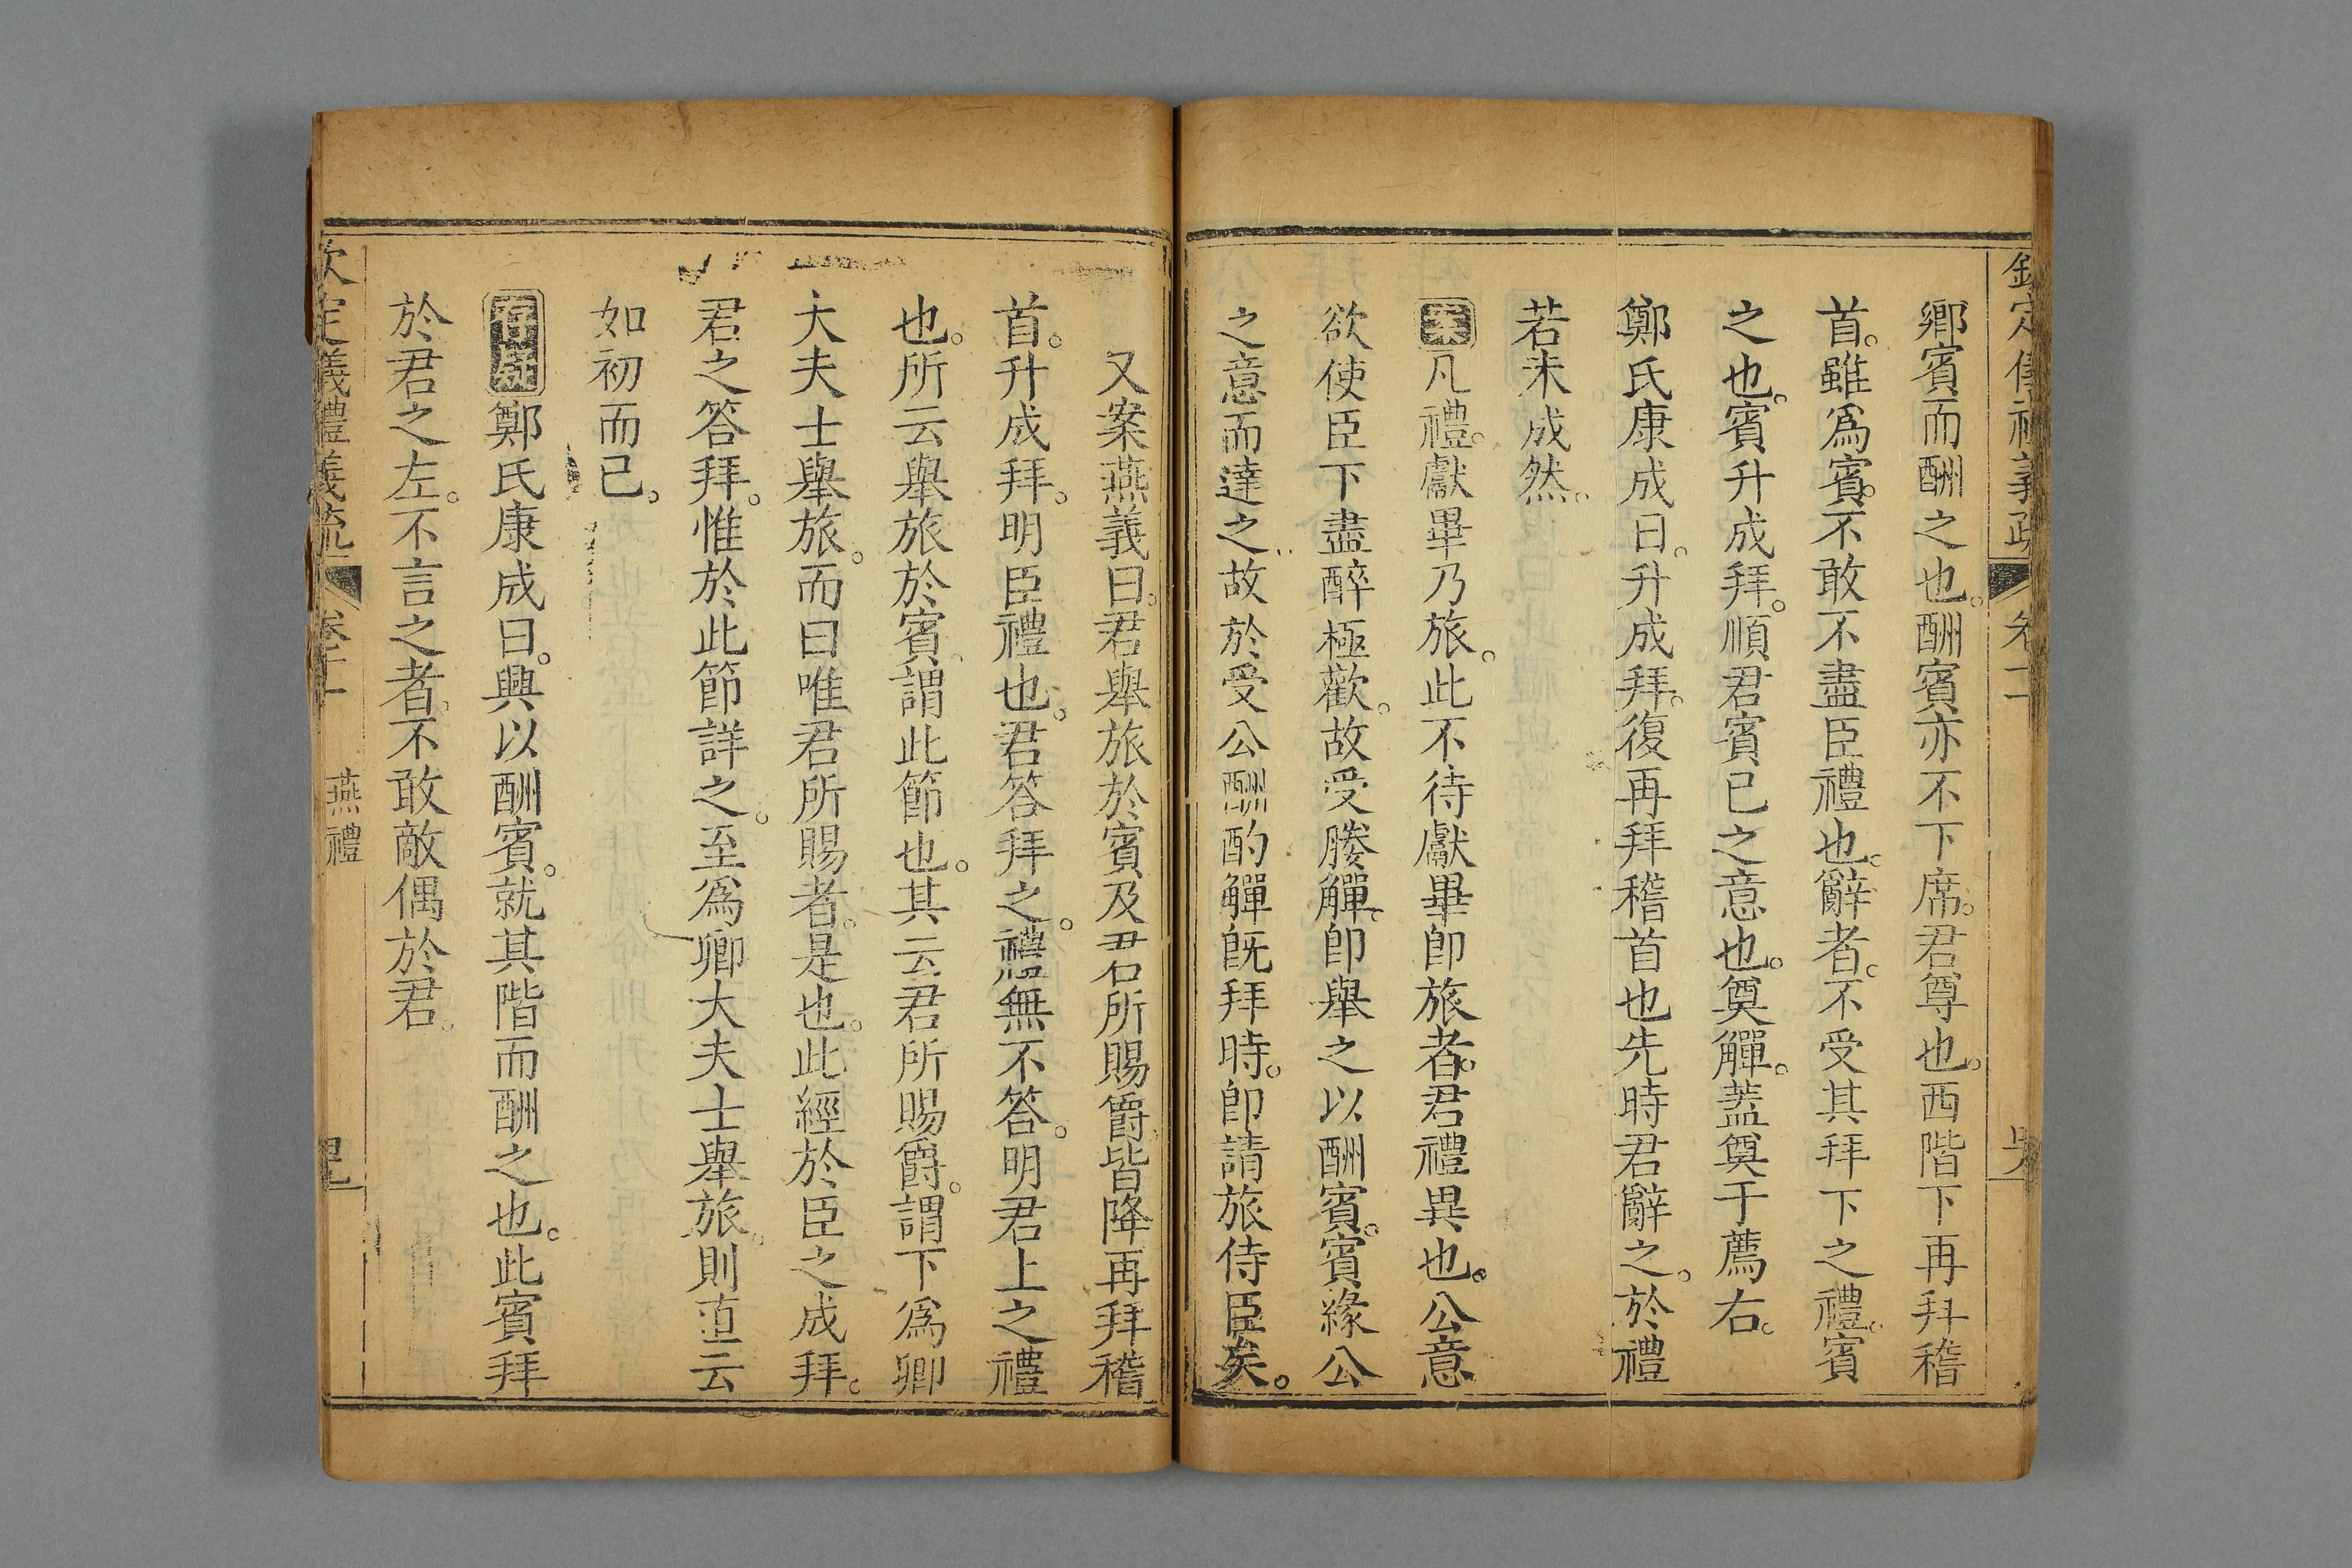 欽定儀禮義疏 卷十一
卿賓而酬之也。酬賓亦不下席。君尊也。西階下再拜稽
首。雖爲賓。不敢不盡臣禮也。辭者。不受其拜下之禮。賓
之也。賓升成拜。順君賓已之意也。奠觶。葢奠于薦右。
鄭氏康成曰。升成拜。復再拜稽首也先時君辭之。於禮
若未成然。
案凡禮。獻畢乃旅。此不待獻畢卽旅者。君禮異也。公意
欲使臣下盡醉極歡。故受媵觶。卽舉之以酬賓。賓緣公
之意而達之。故於受公酬酌觶旣拜時。卽請旅侍臣矣。
又案燕義曰。君舉旅於賓及君所賜爵。皆降再拜稽
首。升成拜。明臣禮也。君答拜之。禮無不答。明君上之禮
也。所云舉旅於賓。謂此節也。其云君所賜爵。謂下爲卿
大夫士舉旅。而曰唯君所賜者。是也。此經於臣之成拜。
君之答拜。惟於此節詳之。至爲卿大夫士舉旅。則直云
如初而已。
存疑鄭氏康成曰。興以酬賓。就其階而酬之也。此賓拜
於君之左。不言之者。不敢敵偶於君。
欽定儀禮義疏 卷十一 燕禮